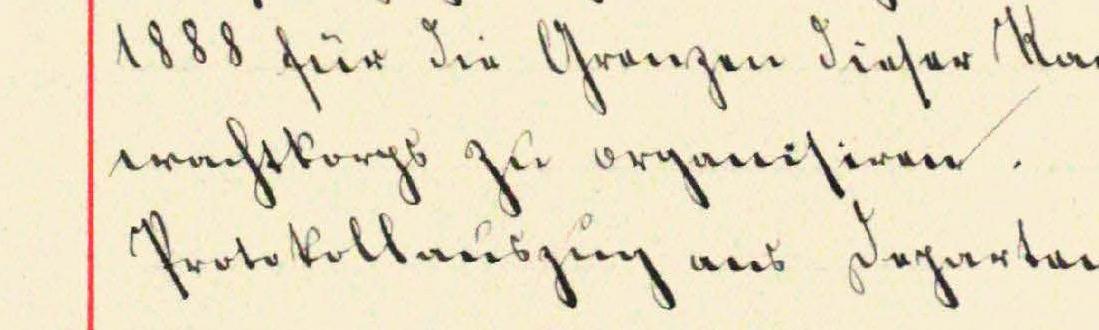 1888 für die Grenzen dieser Ka
wachtkorps zu organisiren.
Protokollauszug ans Departem